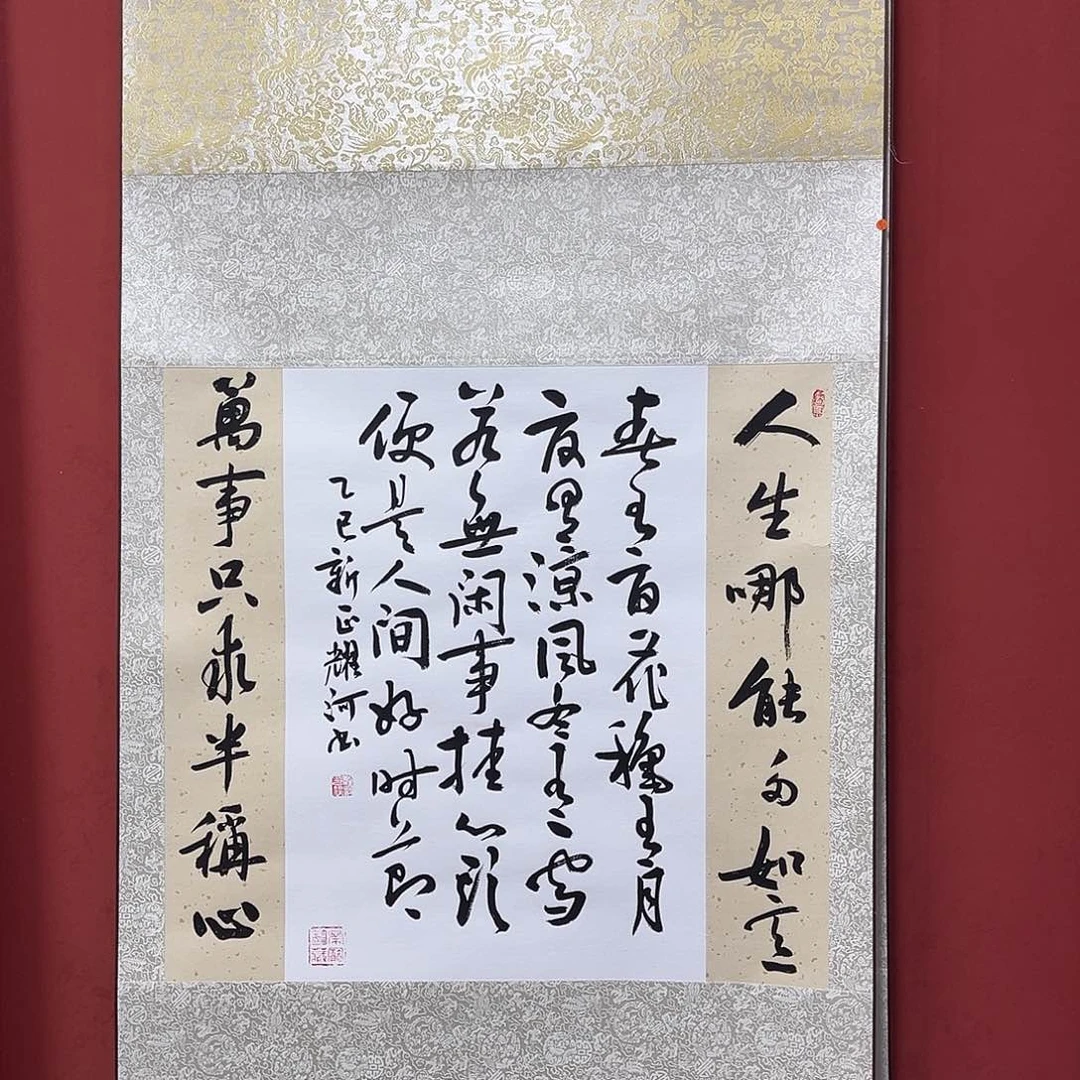 人生哪能多如意
春有百花穐有月
夏有涼風冬有雪
若無闲事挂心頭
便是人间好时节
乙巳新正耀河书
萬事只求半稱心